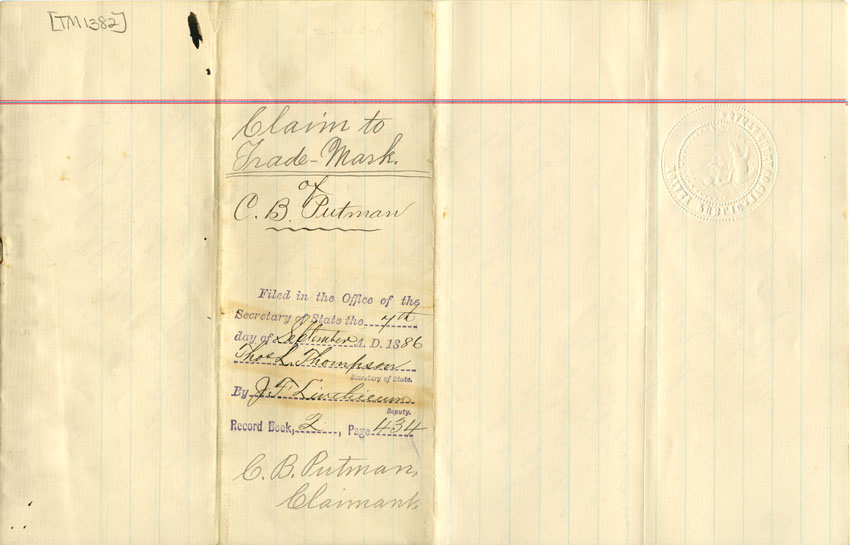 [TM1382]
Claim to
Trade-Mark.
of
C. B. Putman
Filed in the Office of the
Secretary of State the 7th
day of September A. D. 1886
Thos L. Thompson
Secretary of State.
By J. F. Linthicum
Deputy.
Record Book, 2, Page 434
C. B. Putman,
Claimant.